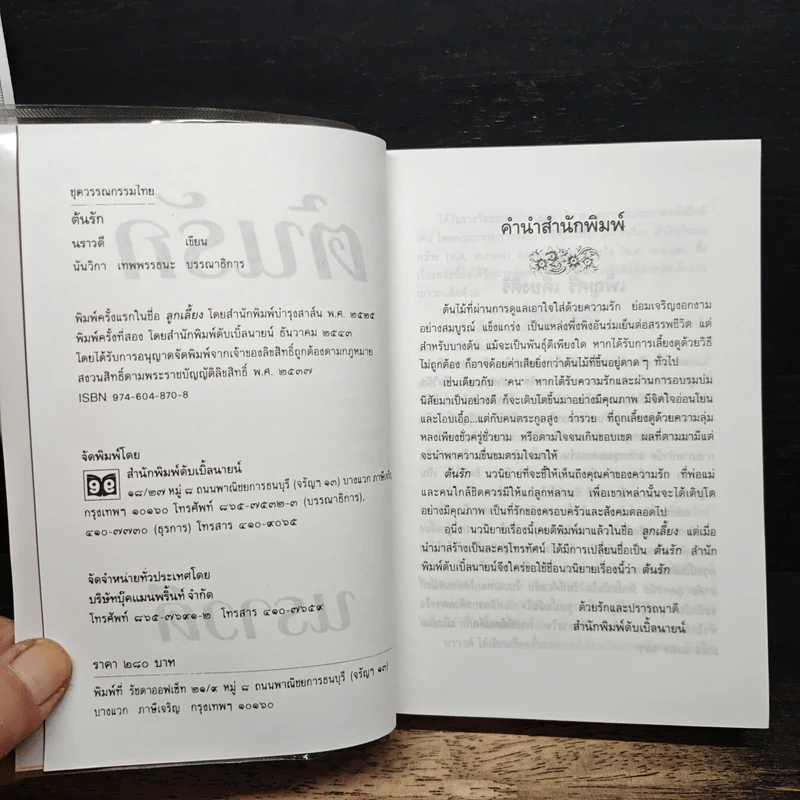 ชุดวรรณกรรมไทย
ต้นรัก
นราวดี เขียน
นันวิกา เทพพรรธนะ บรรณาธิการ
พิมพ์ครั้งแรกในชื่อ ลูกเลี้ยง โดยสำนักพิมพ์บำรุงสาส์น พ.ศ. ๒๕๒๕
พิมพ์ครั้งที่สอง โดยสำนักพิมพ์ดับเบิ้ลนายน์ ธันวาคม ๒๕๔๓
โดยได้รับการอนุญาตจัดพิมพ์จากเจ้าของลิขสิทธิ์ถูกต้องตามกฎหมาย
สงวนสิทธิ์ตามพระราชบัญญัติลิขสิทธิ์ พ.ศ. ๒๕๓๗
ISBN 974-604-870-8
จัดพิมพ์โดย
สำนักพิมพ์ดับเบิ้ลนายน์
๑๘/๒๗ หมู่ ๘ ถนนพาณิชยการธนบุรี (จรัญฯ ๑๓) บางแวก ภาษีเจริญ
กรุงเทพฯ ๑๐๑๖๐ โทรศัพท์ ๘๖๕-๗๕๓๒-๓ (บรรณาธิการ),
๔๑๐-๗๗๓๐ (ธุรการ) โทรสาร ๔๑๐-๙๐๖๕
จัดจำหน่ายทั่วประเทศโดย
บริษัทบุ๊คแมนพริ้นท์ จำกัด
โทรศัพท์ ๘๖๕-๗๖๙๑-๒ โทรสาร ๔๑๐-๗๖๕๙
ราคา ๒๘๐ บาท
พิมพ์ที่ รัชดาออฟเซ็ท ๒๑/๙ หมู่ ๘ ถนนพาณิชยการธนบุรี (จรัญฯ ๑๓)
บางแวก ภาษีเจริญ กรุงเทพฯ ๑๐๑๖๐
คำนำสำนักพิมพ์
ต้นไม้ที่ผ่านการดูแลเอาใจใส่ด้วยความรัก ย่อมเจริญงอกงาม
อย่างสมบูรณ์ แข็งแกร่ง เป็นแหล่งพึ่งพิงอันร่มเย็นต่อสรรพชีวิต แต่
สำหรับบางต้น แม้จะเป็นพันธุ์ดีเพียงใด หากได้รับการเลี้ยงดูด้วยวิธี
ไม่ถูกต้อง ก็อาจด้อยค่าเสียยิ่งกว่าต้นไม้ที่ขึ้นอยู่ดาดๆ ทั่วไป
เช่นเดียวกับ 'คน' หากได้รับความรักและผ่านการอบรมบ่ม
นิสัยมาเป็นอย่างดี ก็จะเติบโตขึ้นมาอย่างมีคุณภาพ มีจิตใจอ่อนโยน
และโอบเอื้อ...แต่กับคนตระกูลสูง ร่ำรวย ที่ถูกเลี้ยงดูด้วยความลุ่ม
หลงเพียงชั่วครู่ชั่วยาม หรือตามใจจนเกินขอบเขต ผลที่ตามมามีแต่
จะนำพาความขื่นขมตรมใจมาให้
ต้นรัก นวนิยายที่จะชี้ให้เห็นถึงคุณค่าของความรัก ที่พ่อแม่
และคนใกล้ชิดควรมีให้แก่ลูกหลาน เพื่อเขาเหล่านั้นจะได้เติบโต
อย่างมีคุณภาพ เป็นที่รักของครอบครัวและสังคมตลอดไป
อนึ่ง นวนิยายเรื่องนี้เคยตีพิมพ์มาแล้วในชื่อ ลูกเลี้ยง แต่เมื่อ
นำมาสร้างเป็นละครโทรทัศน์ ได้มีการเปลี่ยนชื่อเป็น ต้นรัก สำนัก
พิมพ์ดับเบิ้ลนายน์จึงใคร่ขอใช้ชื่อนวนิยายเรื่องนี้ว่า ต้นรัก
ด้วยรักและปรารถนาดี
สำนักพิมพ์ดับเบิ้ลนายน์